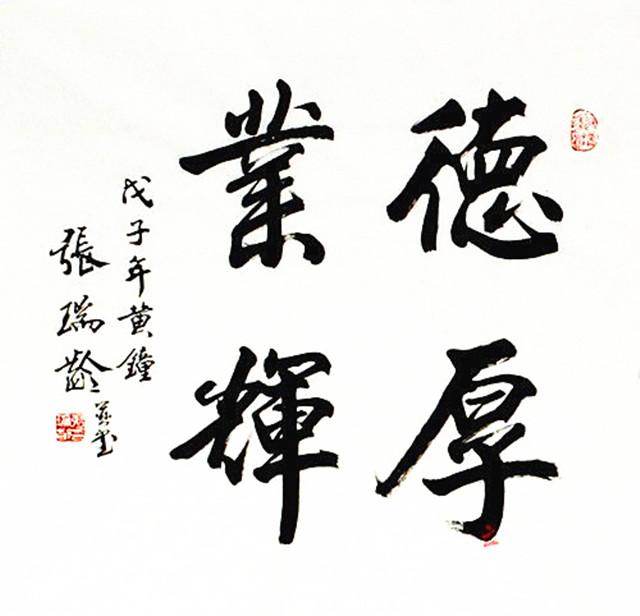 德厚
業輝
戊子年黄鐘
張瑞齡
書